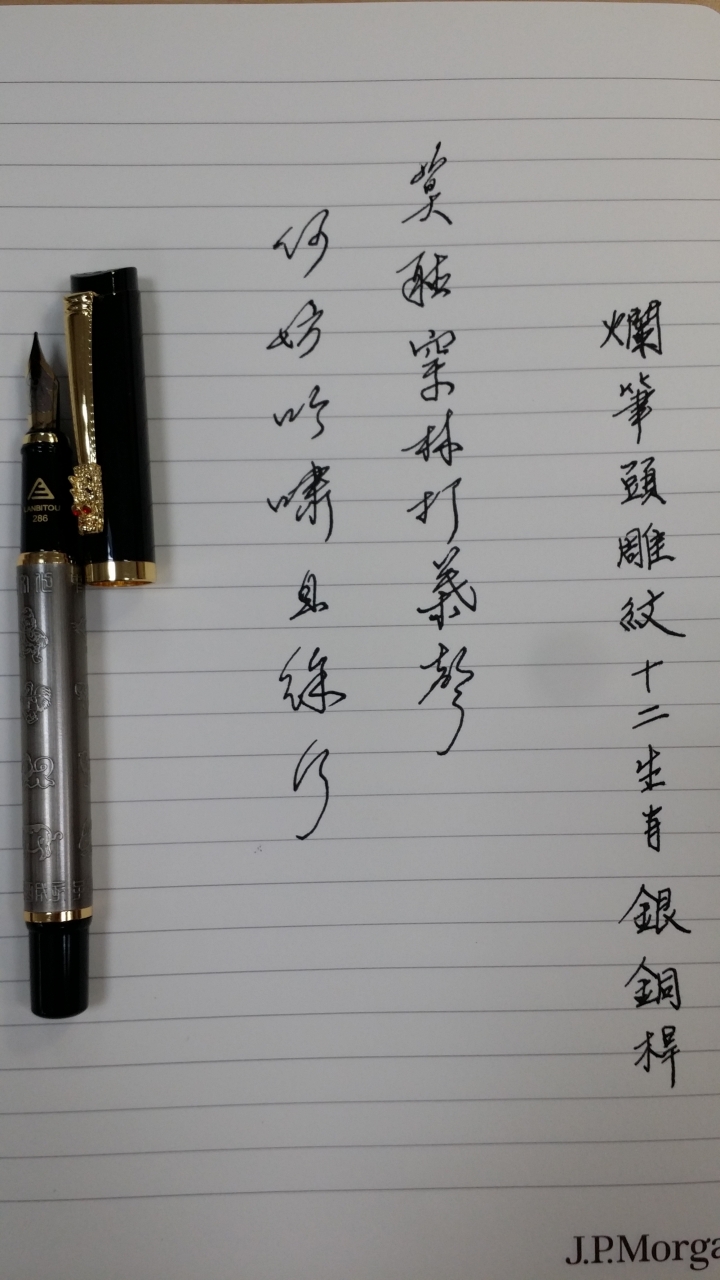 爛筆頭雕紋十二生肖銀銅桿
莫聽穿林打葉聲
何妨吟嘯且徐行
LANBITOU
286
J.P.Morga